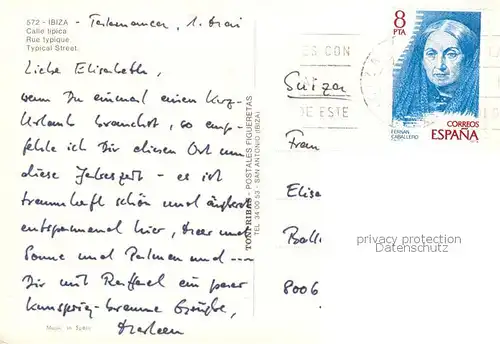 572 - IBIZA -
Calle tipica
Rue typique.
Typical Street.
1. Mai
Liebe Elisabeth,
wenn Du einmal einen Kurz-
Urlaub brauchst, so emp-
fehle ich Dir diesen Ort um
diese Jahreszeit - es ist
traumhaft schön und äußerst
entspannend hier, Meer und
Sonne und Palmen und ---
Dir mit Raffael ein paar
braune Grüße,
Marleen
Made in Spain
TONI RIBAS - POSTALES FIGUERETAS
TEL. 34 00 53 - SAN ANTONIO (IBIZA)
ES CON
DE ESTE
8
PTA
FERNAN
CABALLERO
CORREOS
ESPAÑA
Suiza
Frau
Elisa
8006
privacy protection
Datenschutz